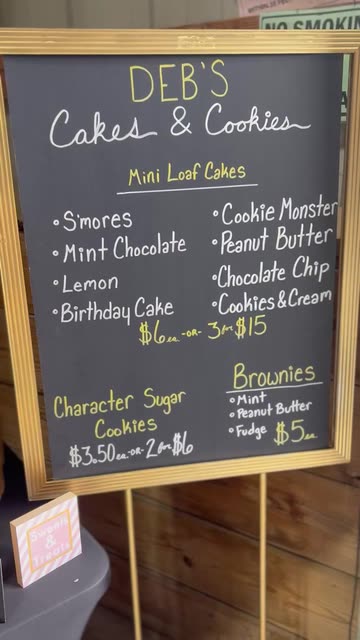 NO SMOKIN
DEB'S
Cakes & Cookies
Mini Loaf Cakes
• S'mores
• Mint Chocolate
• Lemon
• Birthday Cake
• Cookie Monster
• Peanut Butter
• Chocolate Chip
• Cookies & Cream
$6 ea -OR- 3 for $15
Character Sugar
Cookies
$3.50 ea -OR- 2 for $6
Brownies
• Mint
• Peanut Butter
• Fudge $5 ea
Sweets
&
Treats